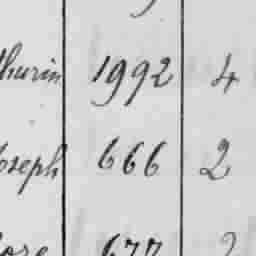 thurin 1992 4
Joseph 666 2
677 2